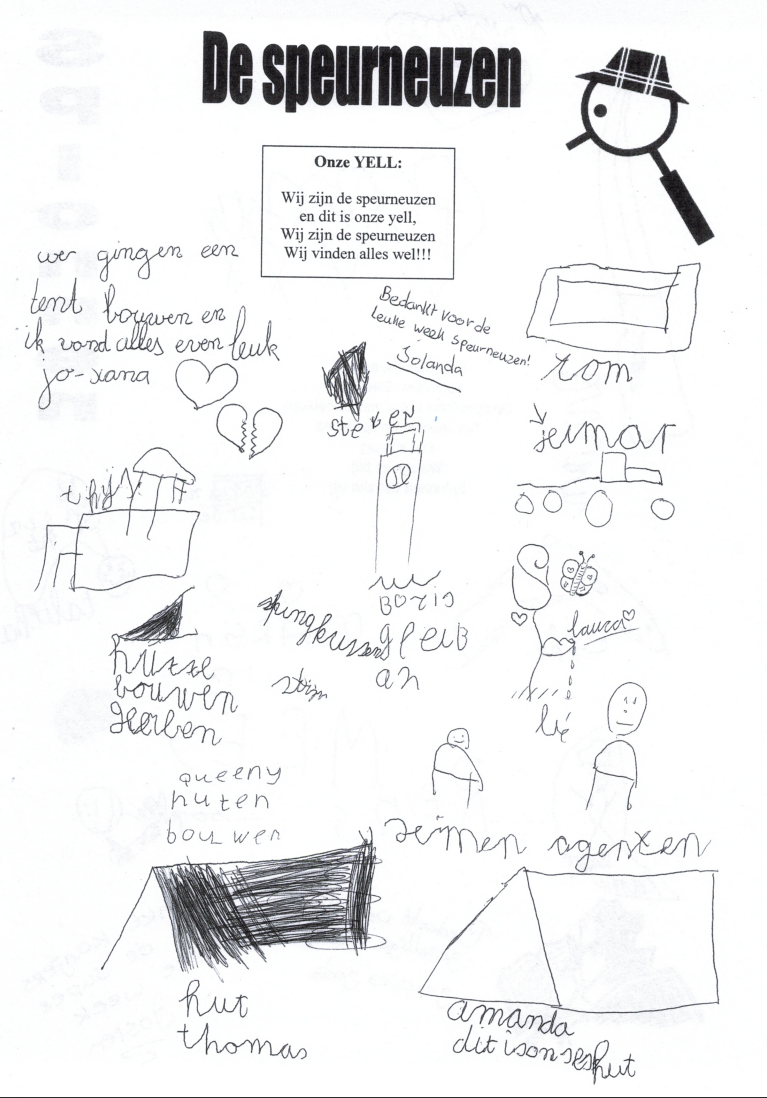 De speurneuzen
Onze YELL:
Wij zijn de speurneuzen
en dit is onze yell,
Wij zijn de speurneuzen
Wij vinden alles wel!!!
wer gingen een
tent bouwen en
ik vond alles even leuk
jo-xana
Bedankt voor de
leuke week speurneuzen!
Jolanda
rom
steven
jeimar
thijs
BORIS
gleib
an
springkussen
stijn
laura
lië
hutte
bouwen
gerben
queeny
huten
bouwen
jeimen agenten
hut
thomas
amanda
dit is onse hut